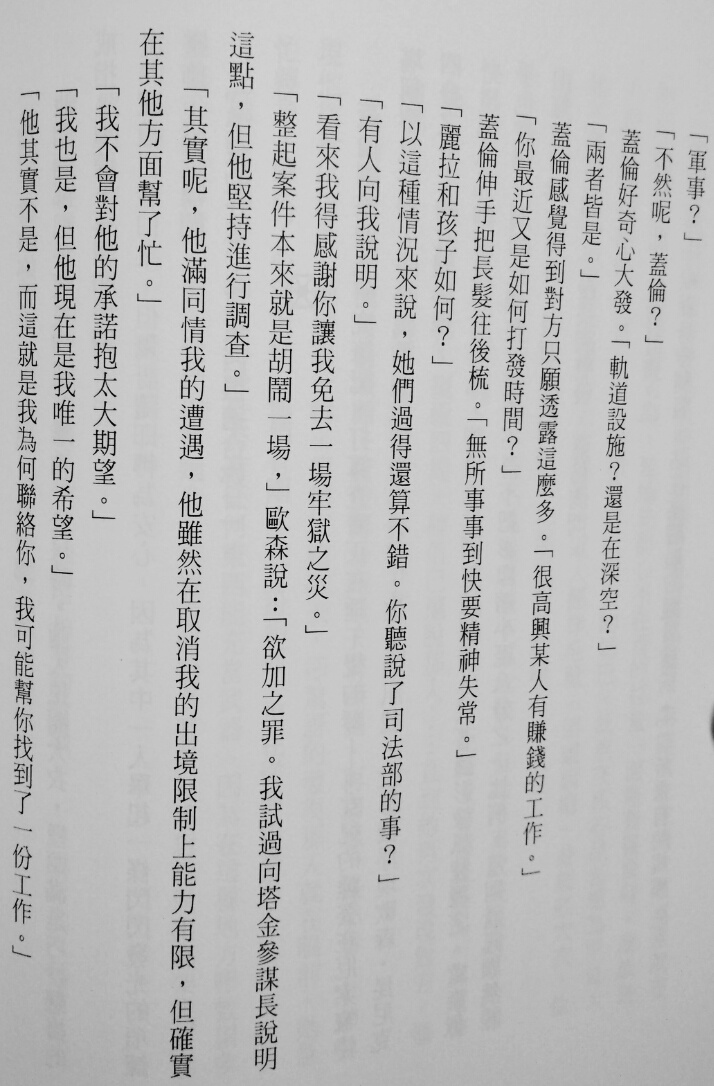 「軍事？」
「不然呢，蓋倫？」
蓋倫好奇心大發。「軌道設施？還是在深空？」
「兩者皆是。」
蓋倫感覺得到對方只願透露這麼多。「很高興某人有賺錢的工作。」
「你最近又是如何打發時間？」
蓋倫伸手把長髮往後梳。「無所事事到快要精神失常。」
「麗拉和孩子如何？」
「以這種情況來說，她們過得還算不錯。你聽說了司法部的事？」
「有人向我說明。」
「看來我得感謝你讓我免去一場牢獄之災。」
「整起案件本來就是胡鬧一場，」歐森說：「欲加之罪。我試過向塔金參謀長說明
這點，但他堅持進行調查。」
「其實呢，他滿同情我的遭遇，他雖然在取消我的出境限制上能力有限，但確實
在其他方面幫了忙。」
「我不會對他的承諾抱太大期望。」
「我也是，但他現在是我唯一的希望。」
「他其實不是，而這就是我為何聯絡你，我可能幫你找到了一份工作。」